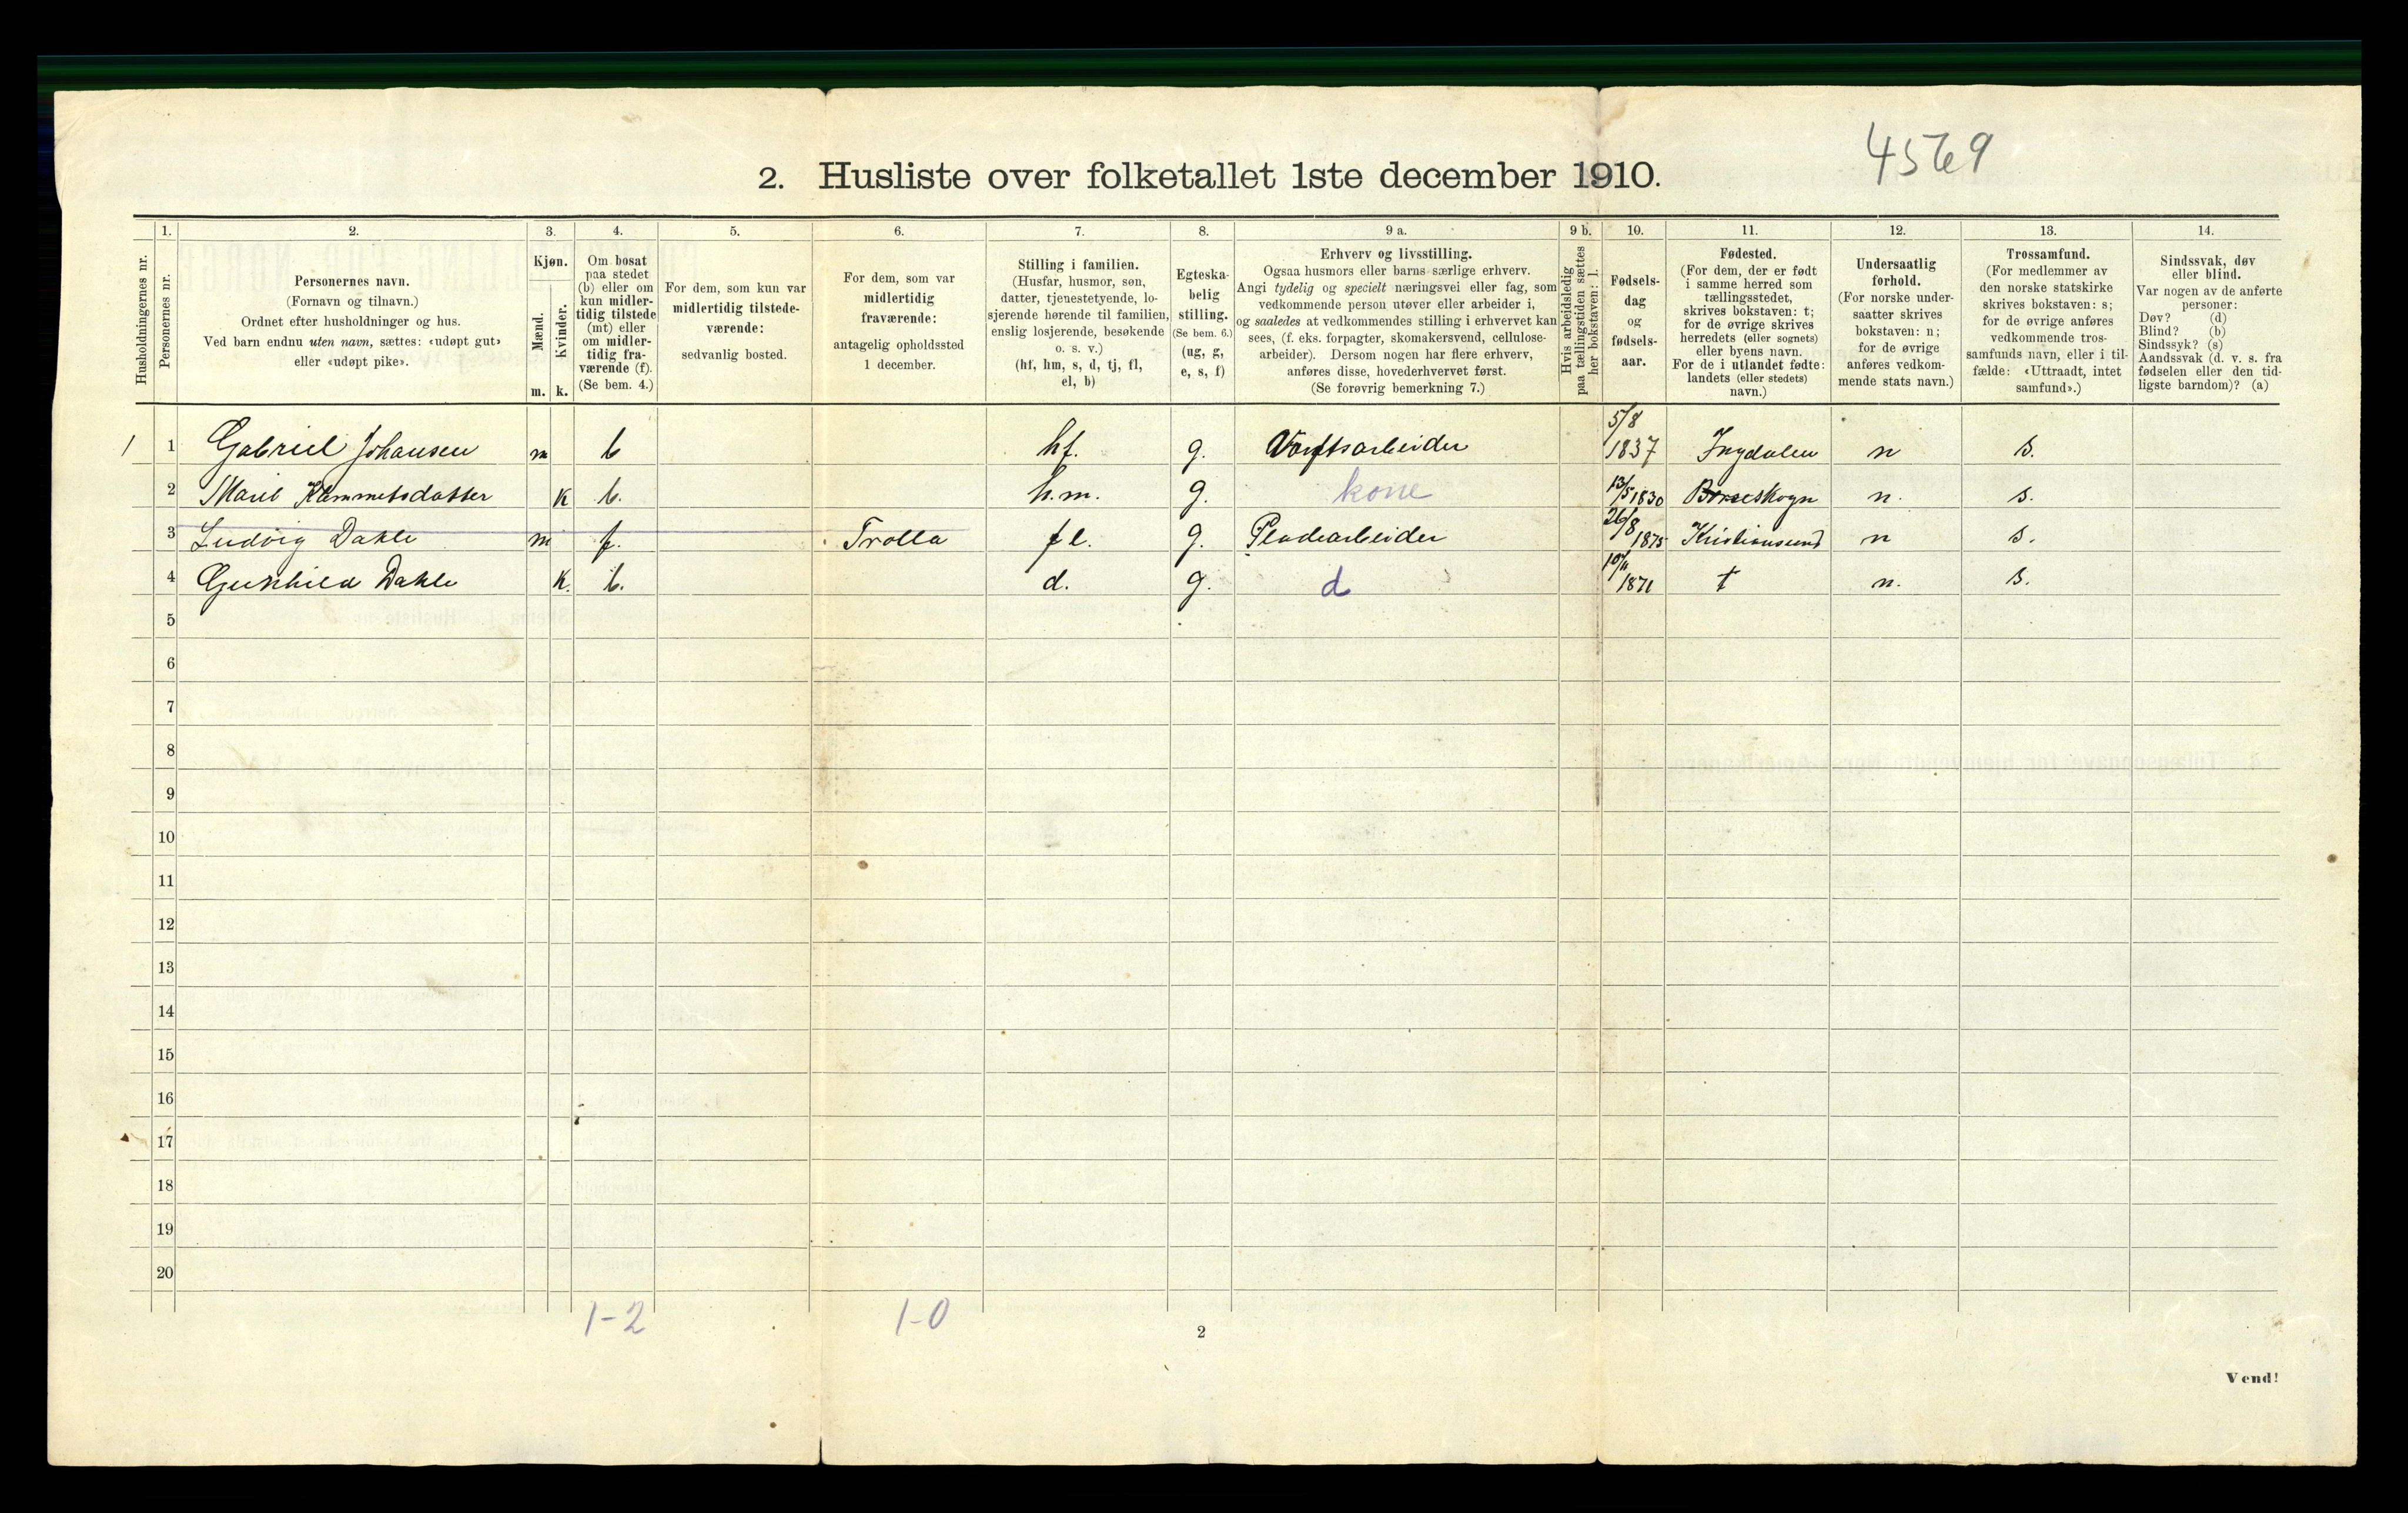 4569
2. Husliste over folketallet 1ste december 1910.
Husholdningernes nr.
1.
Personernes nr.
2.
Personernes navn.
(Fornavn og tilnavn.)
Ordnet efter husholdninger og hus.
Ved barn endnu uten navn, sættes: «udøpt gut»
eller «udøpt pike».
3.
Kjøn.
Mænd.
Kvinder.
m. k.
4.
Om bosat
paa stedet
(b) eller om
kun midler-
tidig tilstede
(mt) eller
om midler-
tidig fra-
værende (f).
(Se bem. 4.)
5.
For dem, som kun var
midlertidig tilstede-
værende:
sedvanlig bosted.
6.
For dem, som var
midlertidig
fraværende:
antagelig opholdssted
1 december.
7.
Stilling i familien.
(Husfar, husmor, søn,
datter, tjenestetyende, lo-
sjerende hørende til familien,
enslig losjerende, besøkende
o. s. v.)
(hf, hm, s, d, tj, fl,
el, b)
8.
Egteska-
belig
stilling.
(Se bem. 6.)
(ug, g,
e, s, f)
9 a.
Erhverv og livsstilling.
Ogsaa husmors eller barns særlige erhverv.
Angi tydelig og specielt næringsvei eller fag, som
vedkommende person utøver eller arbeider i,
og saaledes at vedkommendes stilling i erhvervet kan
sees, (f. eks. forpagter, skomakersvend, cellulose-
arbeider). Dersom nogen har flere erhverv,
anføres disse, hovederhvervet først.
(Se forøvrig bemerkning 7.)
9 b.
Hvis arbeidsledig
paa tællingstiden sættes
her bokstaven: l.
10.
Fødsels-
dag
og
fødsels-
aar.
11.
Fødested.
(For dem, der er født
i samme herred som
tællingsstedet,
skrives bokstaven: t;
for de øvrige skrives
herredets (eller sognets)
eller byens navn.
For de i utlandet fødte:
landets (eller stedets)
navn.)
12.
Undersaatlig
forhold.
(For norske under-
saatter skrives
bokstaven: n;
for de øvrige
anføres vedkom-
mende stats navn.)
13.
Trossamfund.
(For medlemmer av
den norske statskirke
skrives bokstaven: s;
for de øvrige anføres
vedkommende tros-
samfunds navn, eller i til-
fælde: «Uttraadt, intet
samfund».)
14.
Sindssvak, døv
eller blind.
Var nogen av de anførte
personer:
Døv? (d)
Blind? (b)
Sindssyk? (s)
Aandssvak (d. v. s. fra
fødselen eller den tid-
ligste barndom)? (a)
1 1 Gabriel Johansen m b hf. g. Værftsarbeider 5/8 1837 Ingdalen n s.
2 Marit Klemmetsdatter k b. h.m. g. kone 13/5 1830 Børseskogn n. s.
3 Ludvig Dahle m f. Trolla fl. g. Pladearbeider 26/8 1875 Kristiansund n s.
4 Gunhild Dahle k. b. d. g. d 1871 t n. s.
5
6
7
8
9
10
11
12
13
14
15
16
17
18
19
20
1-2 1-0
2
Vend!